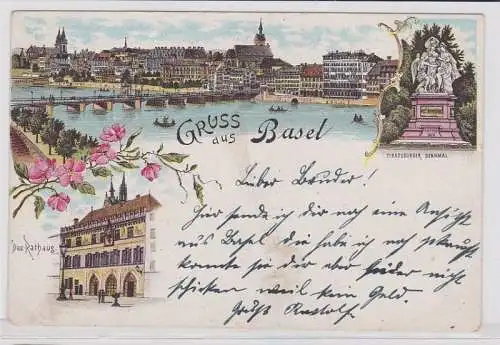 GRUSS
aus Basel
STRASSBURGER DENKMAL
Das Rathaus.
Lieber Bruder!
Hier sende ich dir noch eine Ansicht
aus Basel die habe ich noch gekauft
konnte sie dir aber leider nicht
schicken weil kein Geld.
Gruß Rudolf.